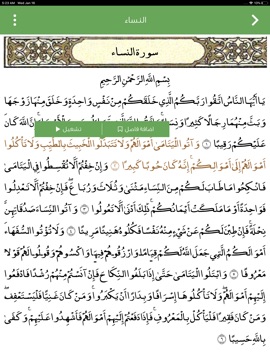 9:23 AM Wed Jan 16
النساء
سورة النساء
بِسْمِ اللَّهِ الرَّحْمَٰنِ الرَّحِيمِ
يَا أَيُّهَا النَّاسُ اتَّقُوا رَبَّكُمُ الَّذِي خَلَقَكُمْ مِنْ نَفْسٍ وَاحِدَةٍ وَخَلَقَ مِنْهَا زَوْجَهَا
وَبَثَّ مِنْهُمَا رِجَالًا كَثِيرًا وَنِسَاءً إِنَّ اللَّهَ كَانَ
عَلَيْكُمْ رَقِيبًا ① وَآتُوا الْيَتَامَىٰ أَمْوَالَهُمْ وَلَا تَتَبَدَّلُوا الْخَبِيثَ بِالطَّيِّبِ وَلَا تَأْكُلُوا
تشغيل اضافة فاصل
أَمْوَالَهُمْ إِلَىٰ أَمْوَالِكُمْ إِنَّهُ كَانَ حُوبًا كَبِيرًا ② وَإِنْ خِفْتُمْ أَلَّا تُقْسِطُوا فِي الْيَتَامَىٰ
فَانْكِحُوا مَا طَابَ لَكُمْ مِنَ النِّسَاءِ مَثْنَىٰ وَثُلَاثَ وَرُبَاعَ فَإِنْ خِفْتُمْ أَلَّا تَعْدِلُوا
فَوَاحِدَةً أَوْ مَا مَلَكَتْ أَيْمَانُكُمْ ذَٰلِكَ أَدْنَىٰ أَلَّا تَعُولُوا ③ وَآتُوا النِّسَاءَ صَدُقَاتِهِنَّ
نِحْلَةً فَإِنْ طِبْنَ لَكُمْ عَنْ شَيْءٍ مِنْهُ نَفْسًا فَكُلُوهُ هَنِيئًا مَرِيئًا ④ وَلَا تُؤْتُوا السُّفَهَاءَ
أَمْوَالَكُمُ الَّتِي جَعَلَ اللَّهُ لَكُمْ قِيَامًا وَارْزُقُوهُمْ فِيهَا وَاكْسُوهُمْ وَقُولُوا لَهُمْ قَوْلًا
مَعْرُوفًا ⑤ وَابْتَلُوا الْيَتَامَىٰ حَتَّىٰ إِذَا بَلَغُوا النِّكَاحَ فَإِنْ آنَسْتُمْ مِنْهُمْ رُشْدًا فَادْفَعُوا
إِلَيْهِمْ أَمْوَالَهُمْ وَلَا تَأْكُلُوهَا إِسْرَافًا وَبِدَارًا أَنْ يَكْبَرُوا وَمَنْ كَانَ غَنِيًّا فَلْيَسْتَعْفِفْ
وَمَنْ كَانَ فَقِيرًا فَلْيَأْكُلْ بِالْمَعْرُوفِ فَإِذَا دَفَعْتُمْ إِلَيْهِمْ أَمْوَالَهُمْ فَأَشْهِدُوا عَلَيْهِمْ وَكَفَىٰ
بِاللَّهِ حَسِيبًا ⑥